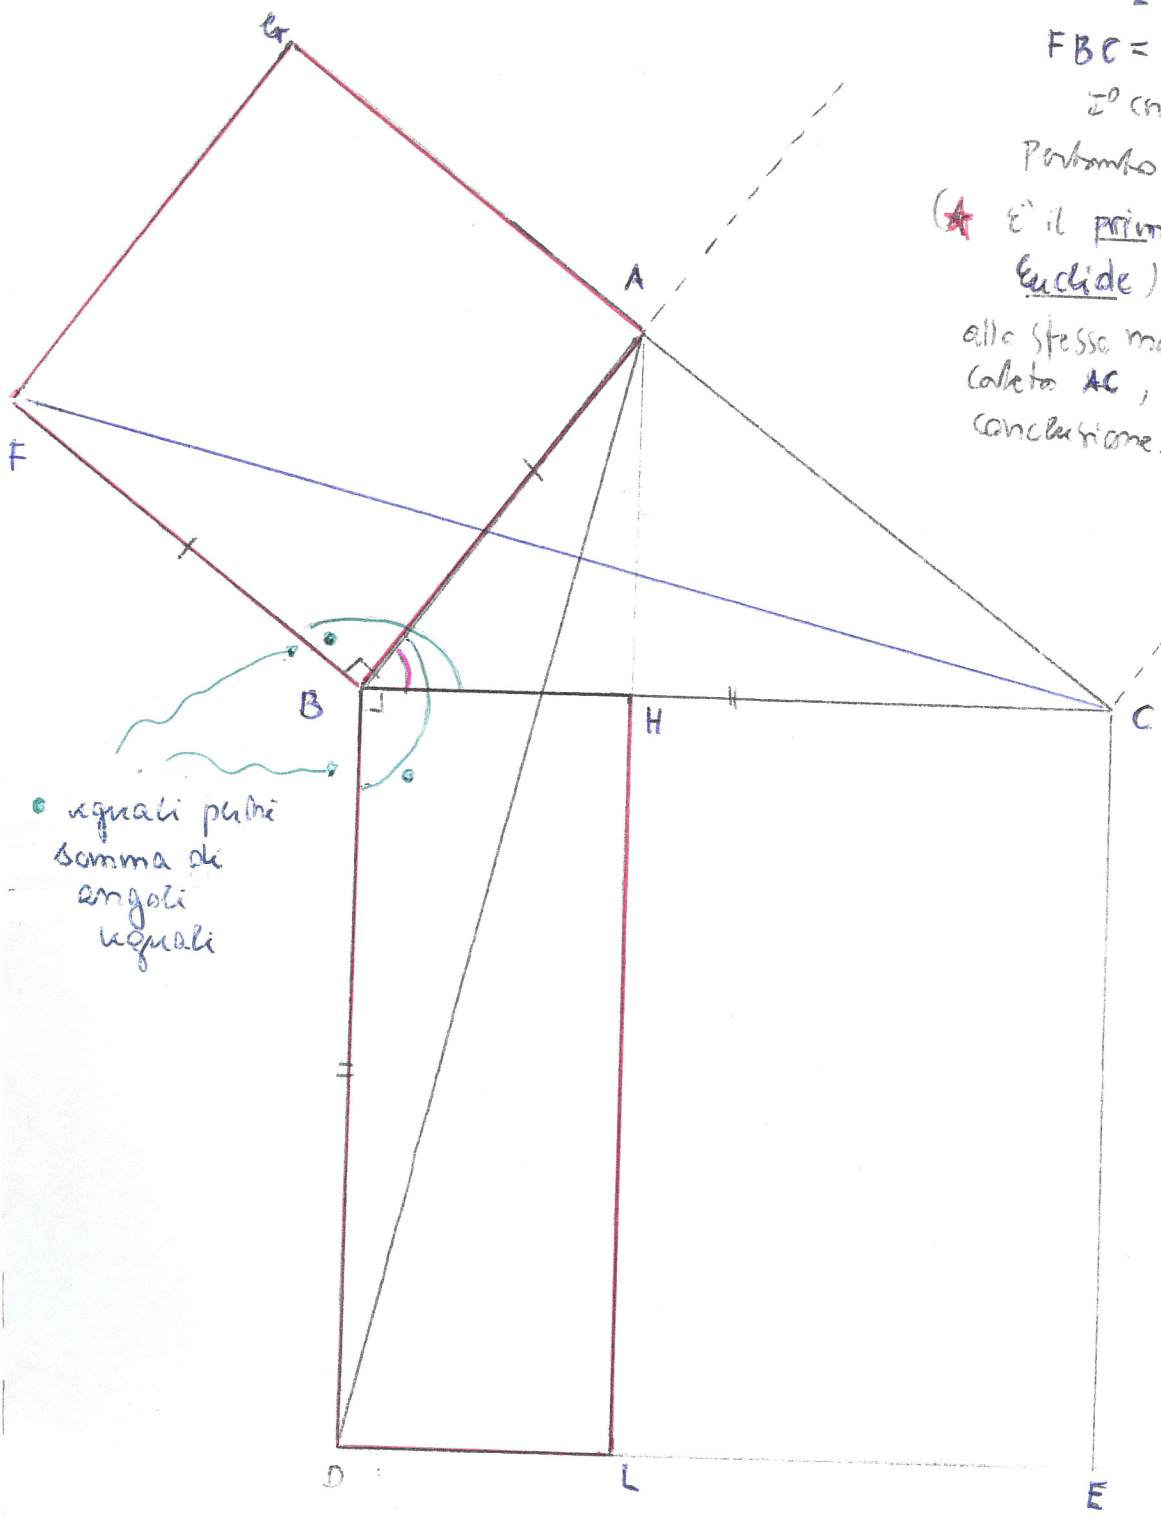 G
FBC =
I°
Pertanto
(★ E' il prim
Euclide)
allo stesso mo
cateto AC,
conclusione.
A
F
B
H
C
• uguali perché
somma di
angoli
uguali
D
L
E